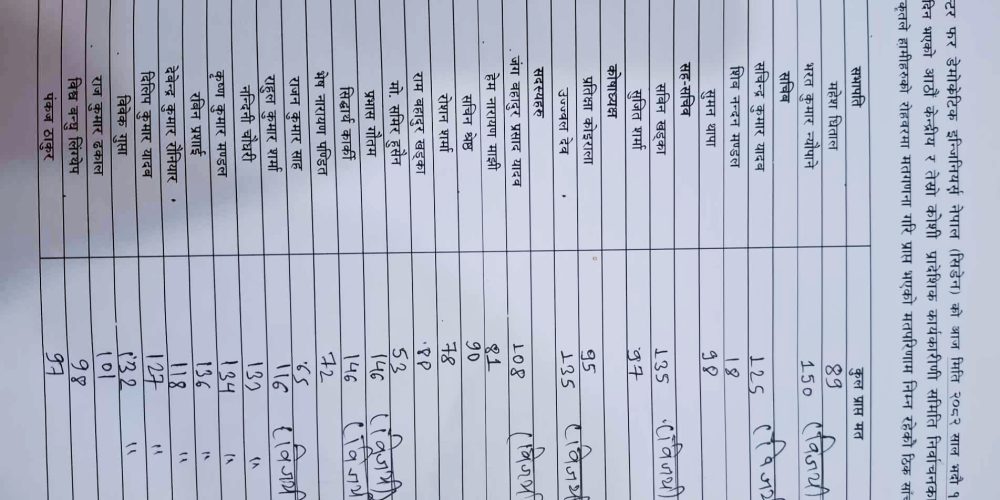 टर फर डेमोक्रेटिक इन्जिनियर्स नेपाल (सिडेन) को आज मिति २०८२ साल भदौ
दिन भएको आठौं केन्द्रीय र तेस्रो कोशी प्रादेशिक कार्यकारीणी समिति निर्वाचनक
कृतले हामीहरुको रोहवरमा मतगणना गरि प्राप्त भएको मतपरिणाम निम्न रहेकोे ठिक सा
सभापति कुल प्राप्त मत
महेश धिताल 89
भरत कुमार न्यौपाने 150 (विजयी)
सचिव
सचिन्द्र कुमार यादव 125 (विजयी
शिव नन्दन मण्डल 18
सुमन थापा 98
सह-सचिव
सबिन खड्का 135 (विजयी
सुजित शर्मा 97
कोषाध्यक्ष
प्रतिक्षा कोइराला 95
उज्ज्वल देव 135 (विजयी
सदस्यहरु
जंग बहादुर प्रसाद यादव 108 (विजयी
हेम नारायण माझी 81
सबिन श्रेष्ठ 90
रोशन शर्मा 78
राम बहादुर खड्का
मो. समिर हुसैन 53
प्रभास गौतम 146 (विजयी)
सिद्धार्थ कार्की 146 (विजयी
शेष नारायण पण्डित 72
राजन कुमार साह 65
राहुल कुमार शर्मा 116 (विजयी
नन्दिनी चौधरी 133 "
कृष्ण कुमार मण्डल 134 "
रबिन प्रसाई 136 "
देबेन्द्र कुमार रौनियार 118 "
दिलिप कुमार यादव 127 "
विवेक गुप्ता 132 "
राज कुमार ढकाल 101
विद्य बन्धु लिम्बेय 98
पंकज ठाकुर 97